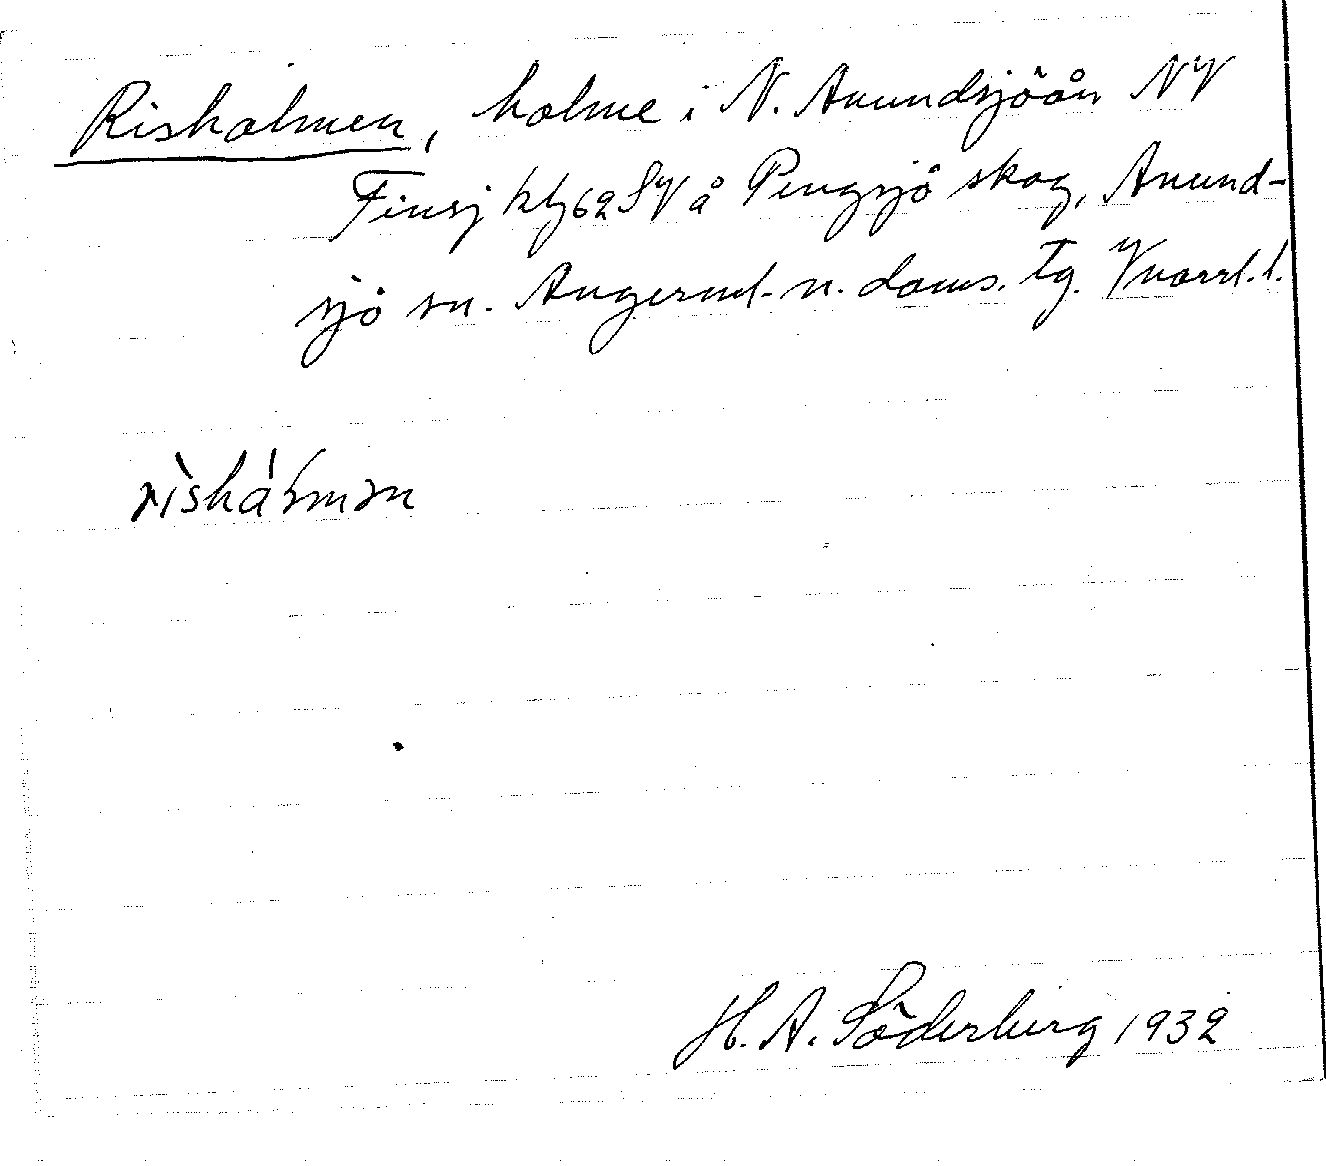 Risholmen, holme i N. Anundsjöån NV
Finsj kbg 62 SV å Pengsjö skog, Anund-
sjö sn. Angerml. n. doms. Tg. Vnorrl. l.
rìshálmən
H. A. Söderberg 1932